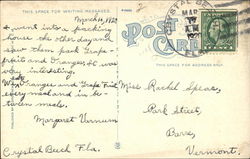 THIS SPACE FOR WRITING MESSAGES.
March 16, 192
I went into a packing
house the other day and
saw them pack Grape-
fruit and Oranges. It was
very interesting.
Oranges and Grape Fruit
every meal and in be-
tween meals.
Margaret Varnum
Crystal Beach Fla.
POST CARD
MAR
A.M.
THIS SPACE FOR ADDRESS ONLY.
Miss Rachel Spear,
Park Street,
Barre,
Vermont.